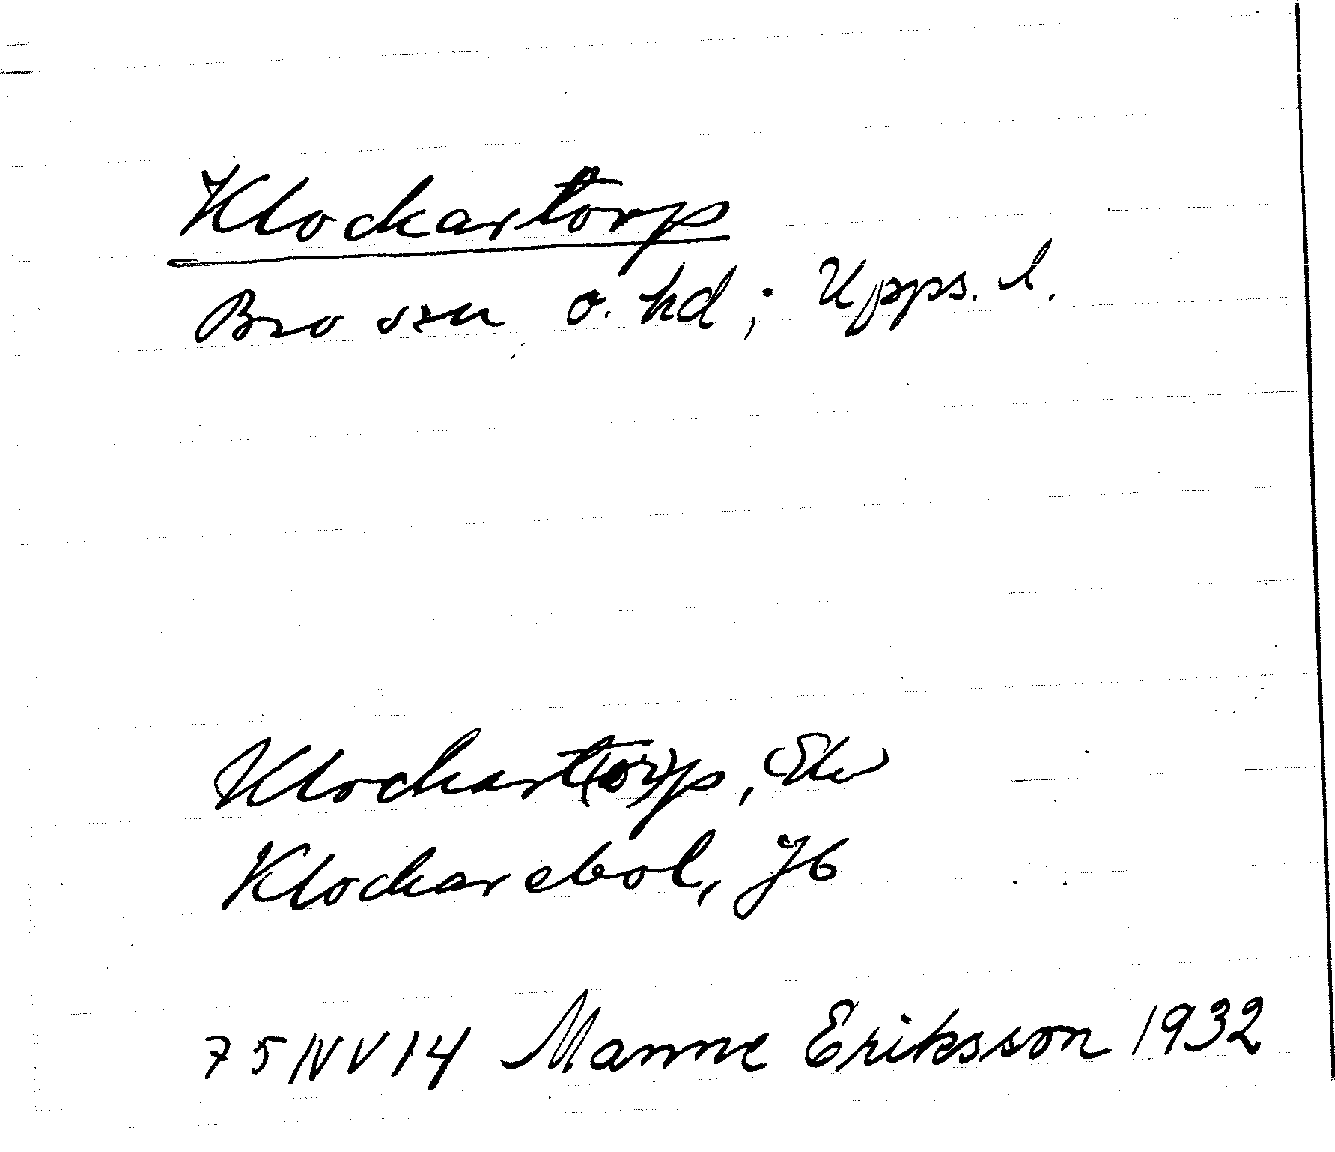 Klockartorp
Bro sn o. hd; Upps. l.
Klockart(or)p, Ek
Klockarebol, Jb
75 NV 14 Manne Eriksson 1932